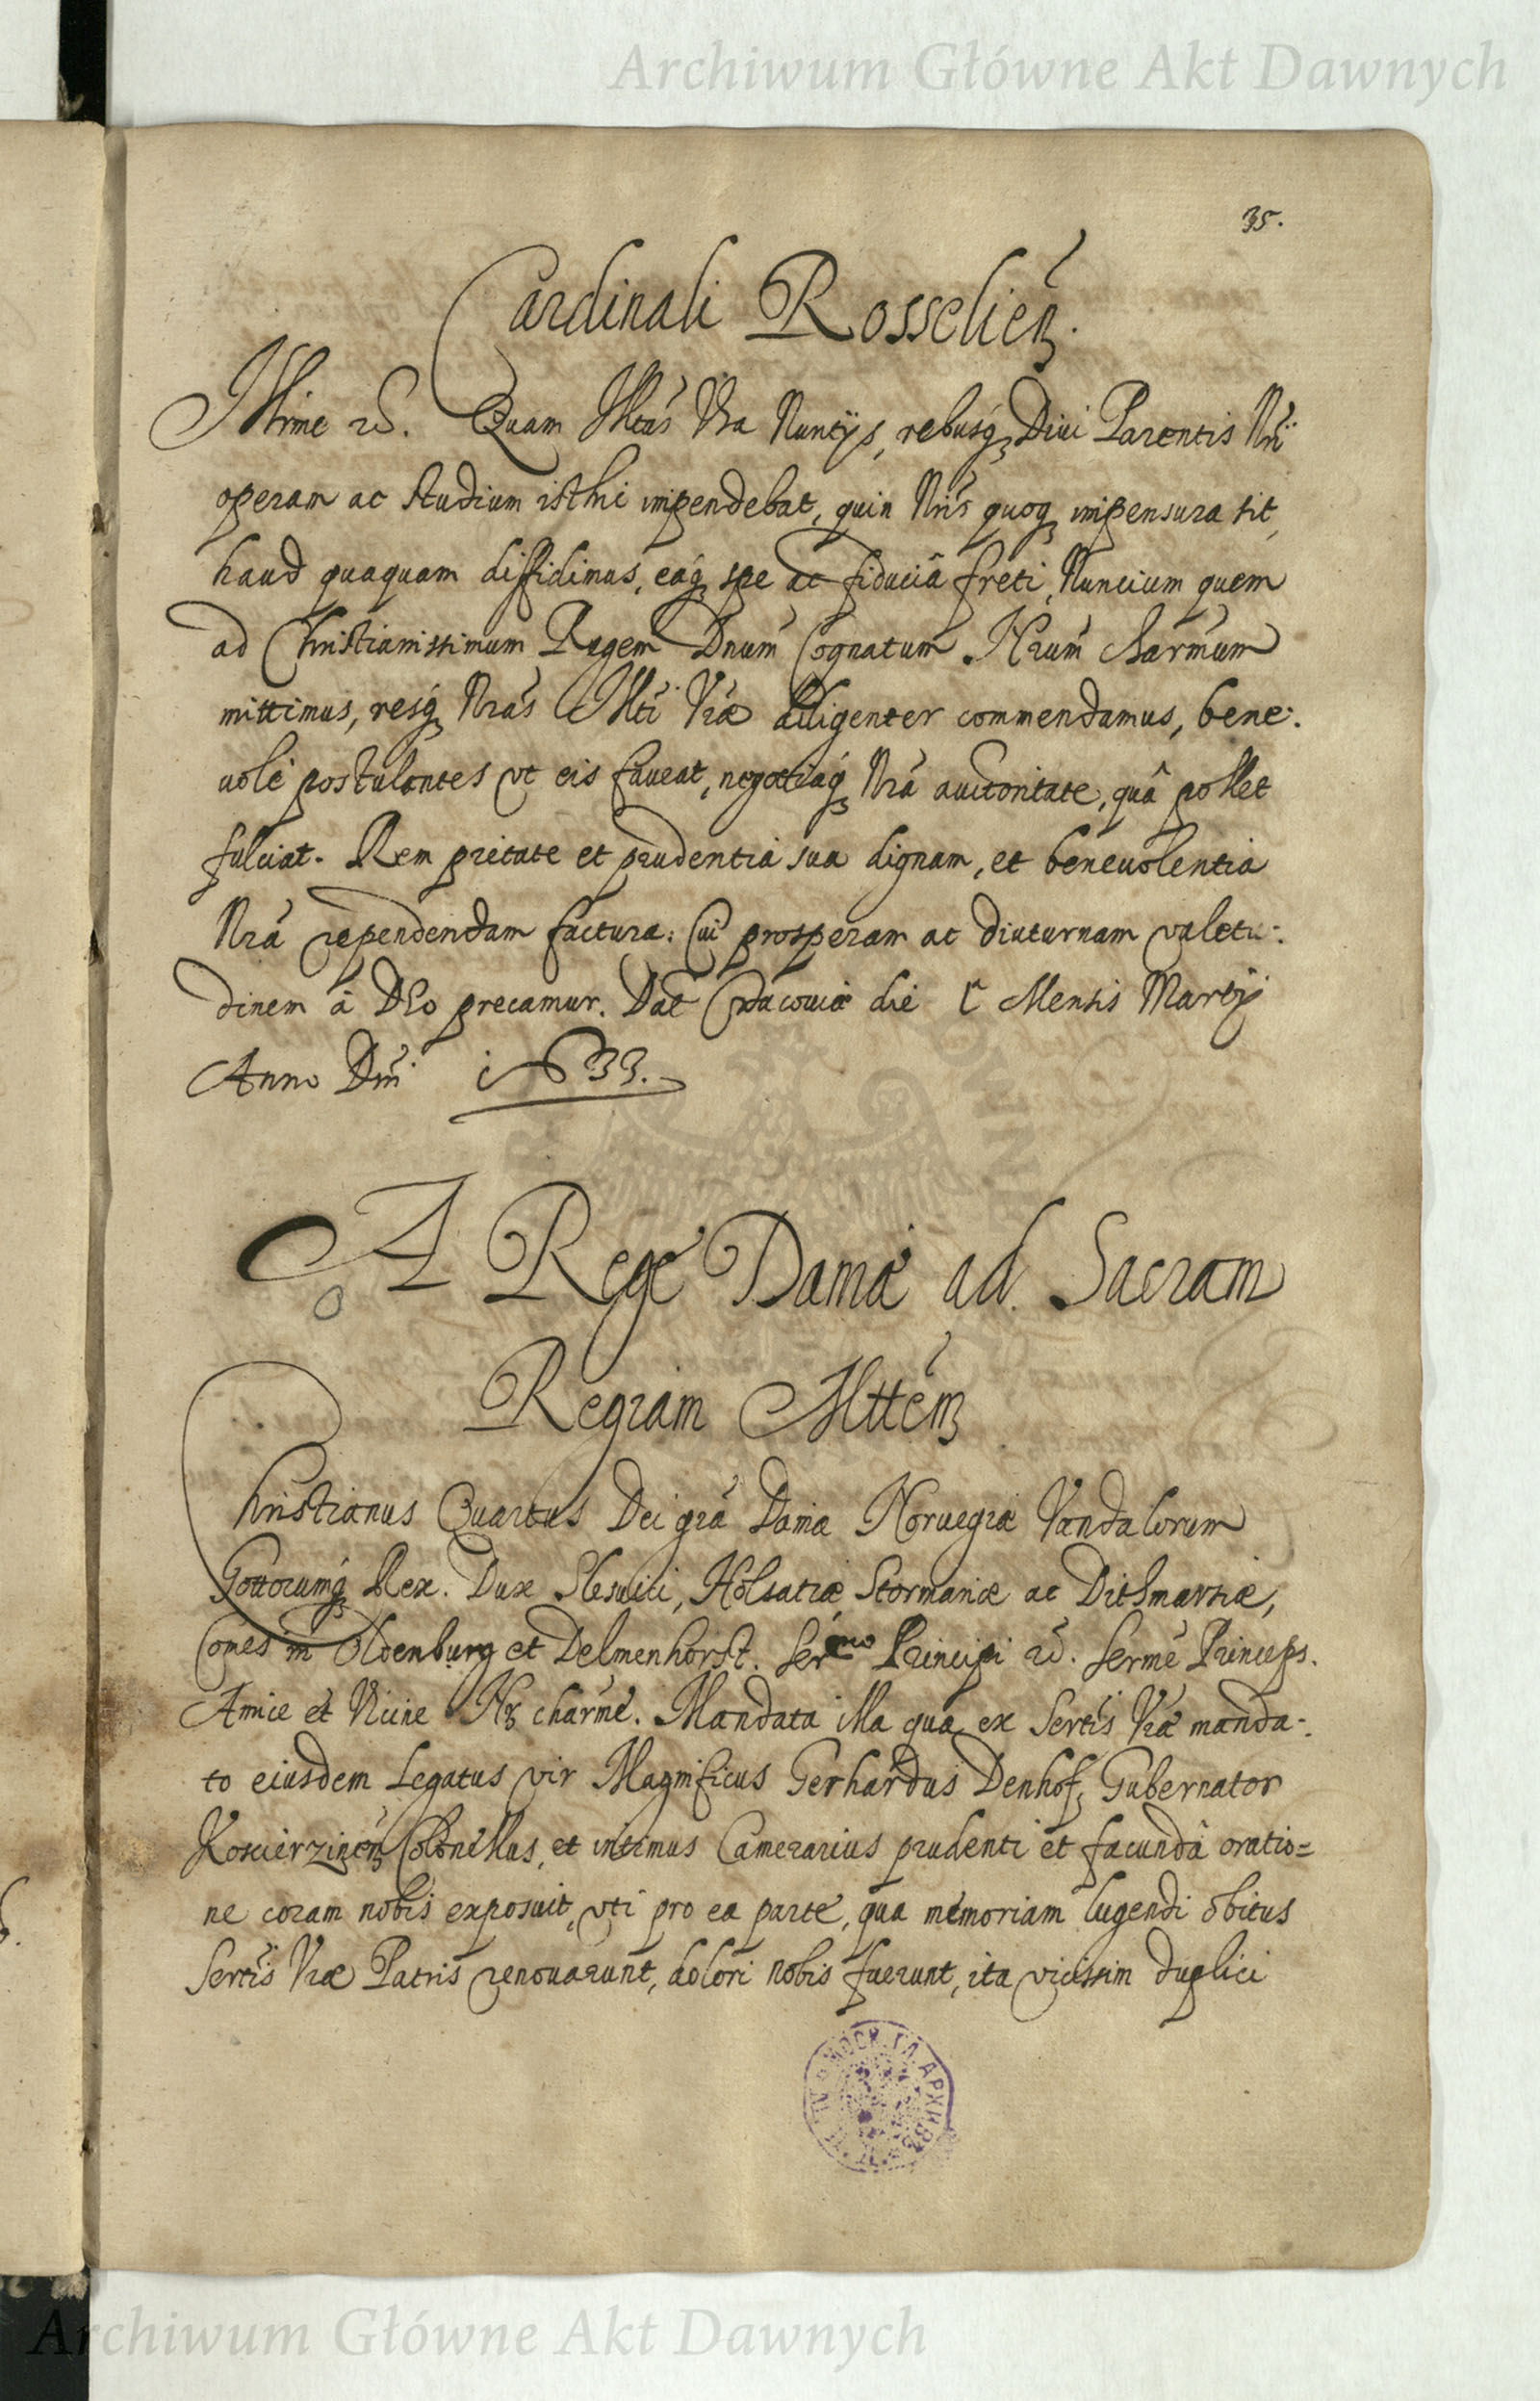 Archiwum Główne Akt Dawnych
35.
Cardinali Rosselień.
Illrime etc. Quam Illtas Vra Nuntys, rebusq Diui Parentis Nri
operam ac studium isthic impendebat, quin Nris quoq impensura sit,
haud quaquam diffidimus, eaq spe ac fiduciâ freti, Nuncium quem
ad Christianissimum Regem Dnum Cognatum Nrum charmum
mittimus, resq Nras Illti Vræ diligenter commendamus, bene-
uolè postulantes vt eis faueat, negotiaq Nra auctoritate, quâ pollet
fulciat. Rem pietate et prudentia sua dignam, et beneuolentia
Nra rependendam factura: Cui prosperam ac diuturnam valetu-
dinem â DEo precamur. Dat Cracouiæ die Mensis Marty
Anno Dni 1633.
A Rege Daniæ ad Sacram
Regiam Mttem
Christianus Quartus Dei gra Daniæ Noruegiæ Vandalorum
Gottorumq Rex. Dux Slesuici, Holsatiæ Stormariæ ac Dithmarsiæ,
Comes in Oldenburg et Delmenhorst. Sermo Principi etc. Serme Princeps.
Amice et Vicine Nr charme. Mandata illa qua ex Sertis Vræ manda-
to eiusdem Legatus vir Magnificus Gerhardus Denhof, Gubernator
Koscierzinen Colonellus, et intimus Camerarius prudenti et facundâ oratio=
ne coram nobis exposuit, vti pro ea parte, qua memoriam lugendi obitus
Sertis Vræ Patris renouarunt, dolori nobis fuerunt, ita vicissim duplici
Archiwum Główne Akt Dawnych